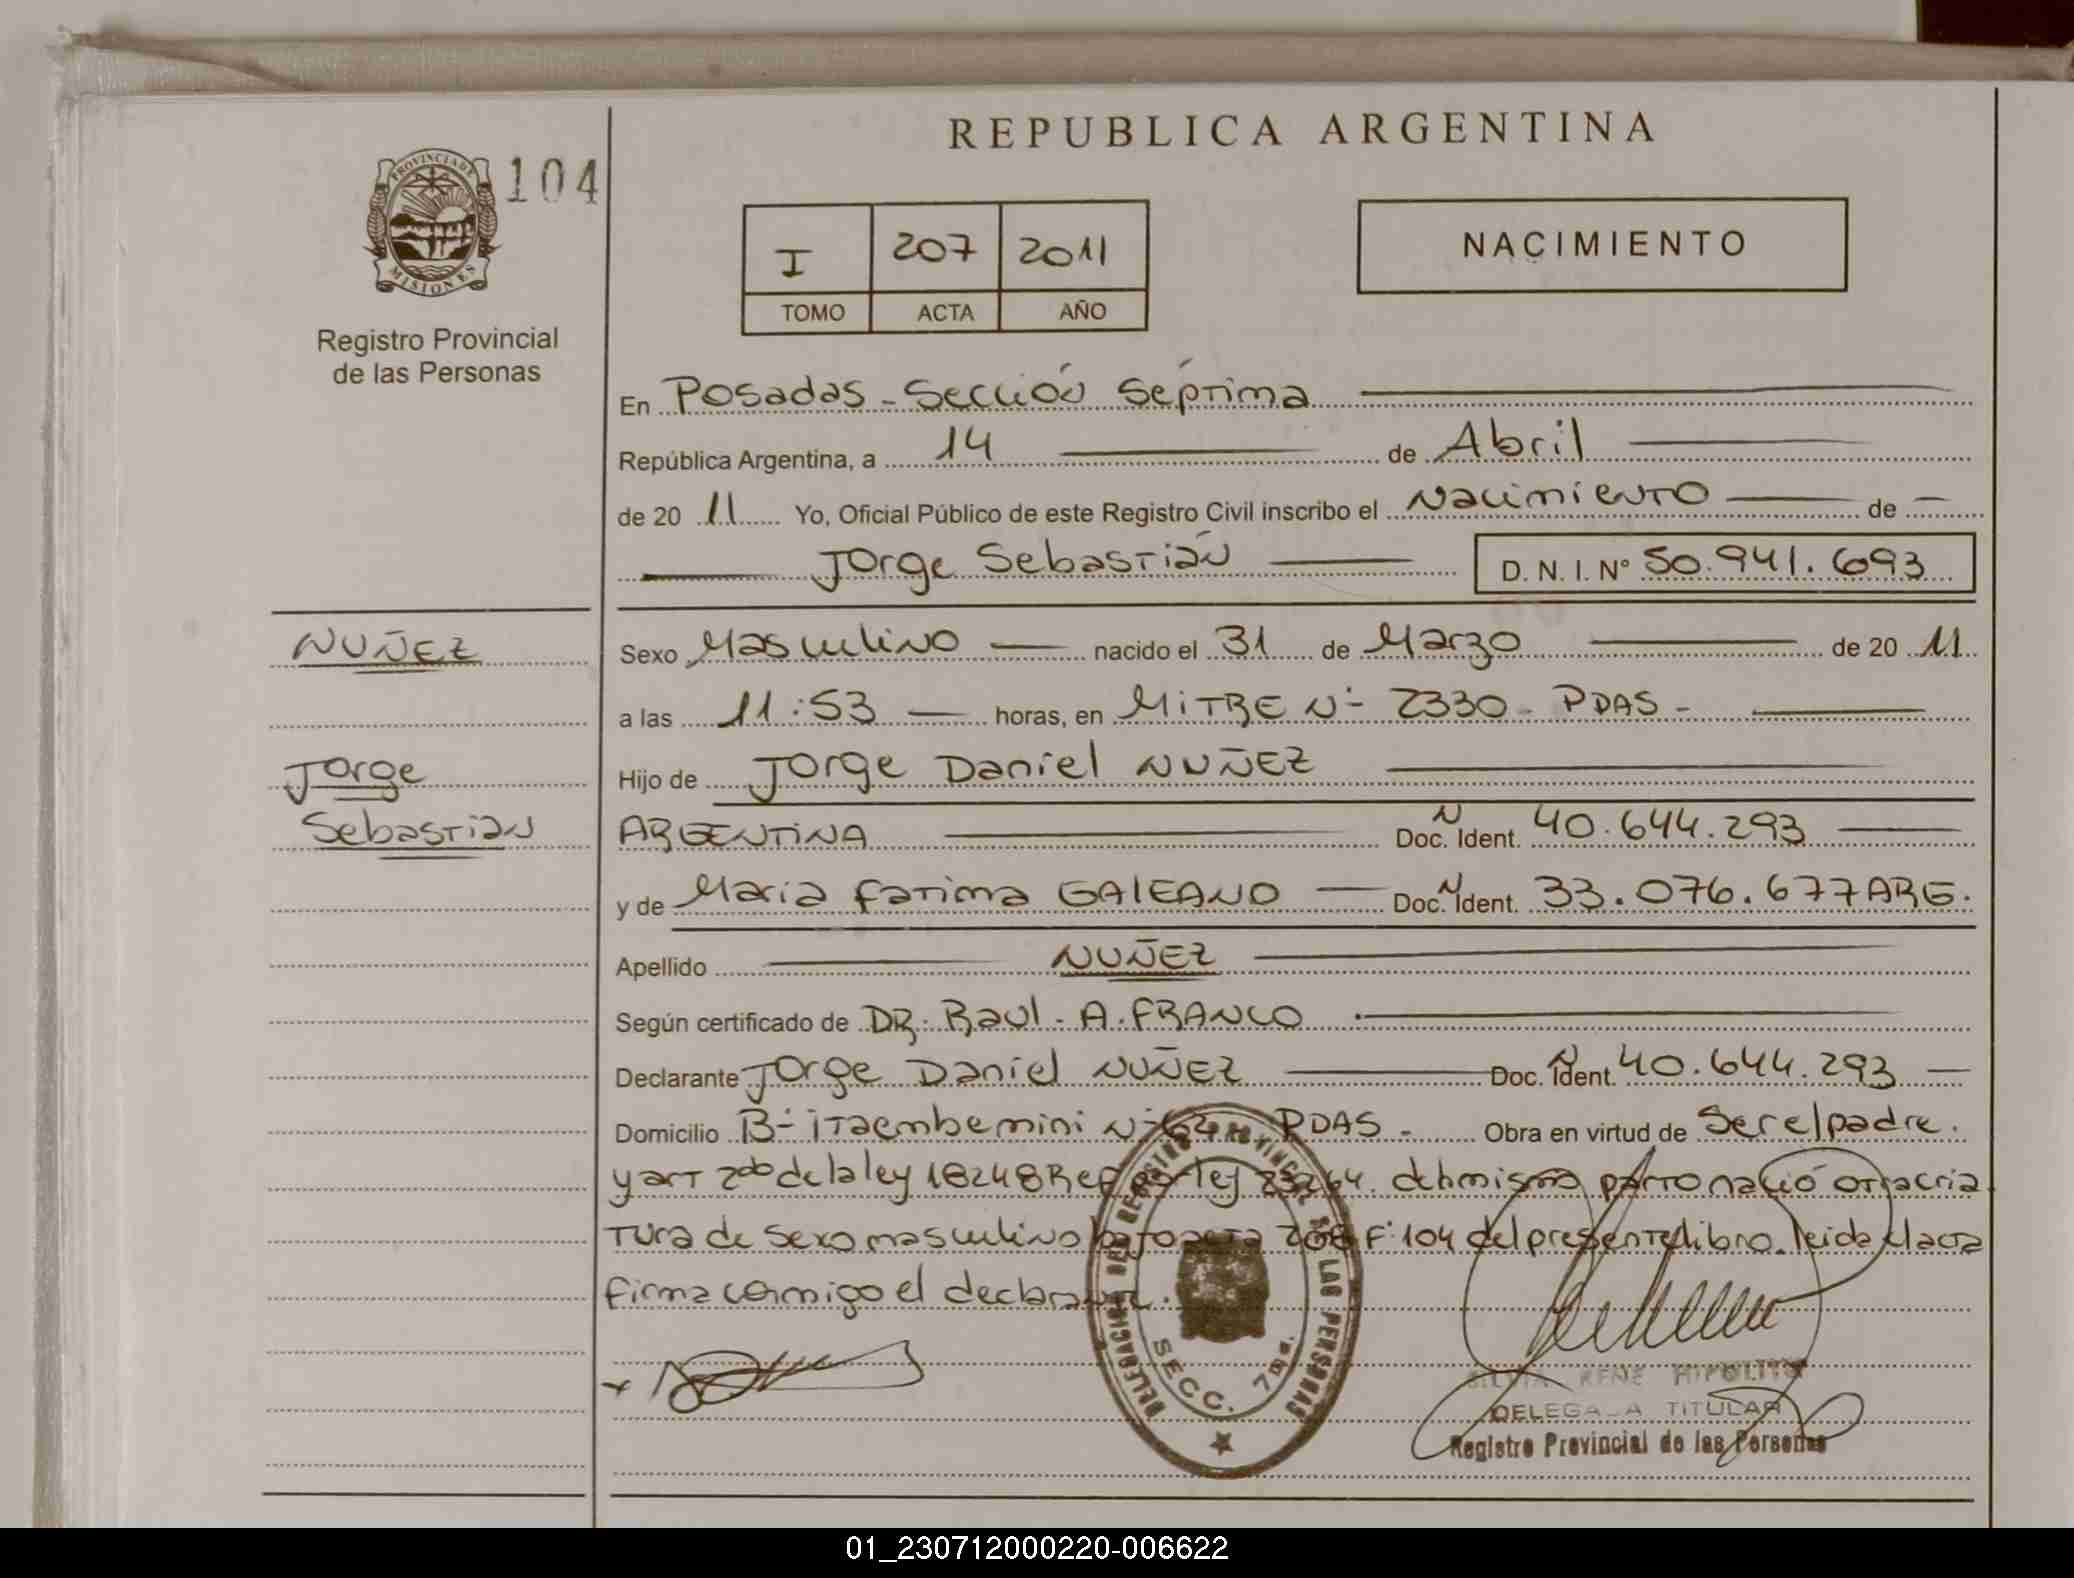 REPUBLICA ARGENTINA
PROVINCIA DE
MISIONES
104
Registro Provincial
de las Personas
I 207 2011
TOMO ACTA AÑO
NACIMIENTO
En Posadas - Sección Séptima
República Argentina, a 14 de Abril
de 20 11 Yo, Oficial Público de este Registro Civil inscribo el Nacimiento de
Jorge Sebastián D. N. I. N° 50.941.693
NUÑEZ
Jorge
Sebastian
Sexo Masculino nacido el 31 de Marzo de 20 11
a las 11:53 horas, en MiTRE N- 2330 - PDAS -
Hijo de Jorge Daniel NUÑEZ
ARGENTiNA N Doc. Ident. 40.644.293
y de Maria Fatima GALEANO Doc. N Ident. 33.076.677 ARG.
Apellido NUÑEZ
Según certificado de DR. Raul. A. FRANCO
Declarante Jorge Daniel NUÑEZ Doc. N Ident. 40.644.293
Domicilio B- iTaembemini N- PDAS - Obra en virtud de Ser el padre.
y art 2do de la ley 18248 Ref por ley 23264. del mismo parto nació otra cria
Tura de sexo masculino bajo acta 208 F° 104 del presente libro. leida el acta
firma conmigo el declarante.
DELEGACION DEL REGISTRO PROVINCIAL DE LAS PERSONAS
SECC. 7ma.
SILVIA RENE HIPOLITO
DELEGADA TITULAR
Registro Provincial de las Personas
01_230712000220-006622